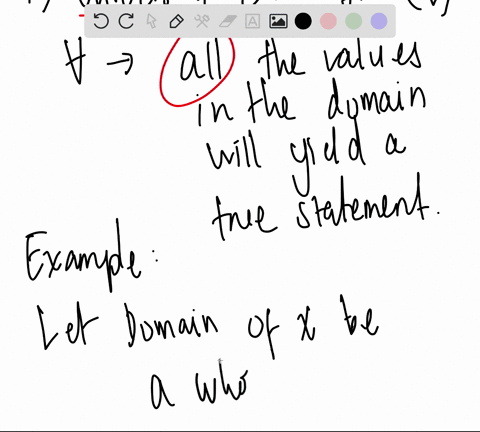 ∀ → all the values
in the domain
will yield a
true statement.
Example:
Let Domain of x be
a who